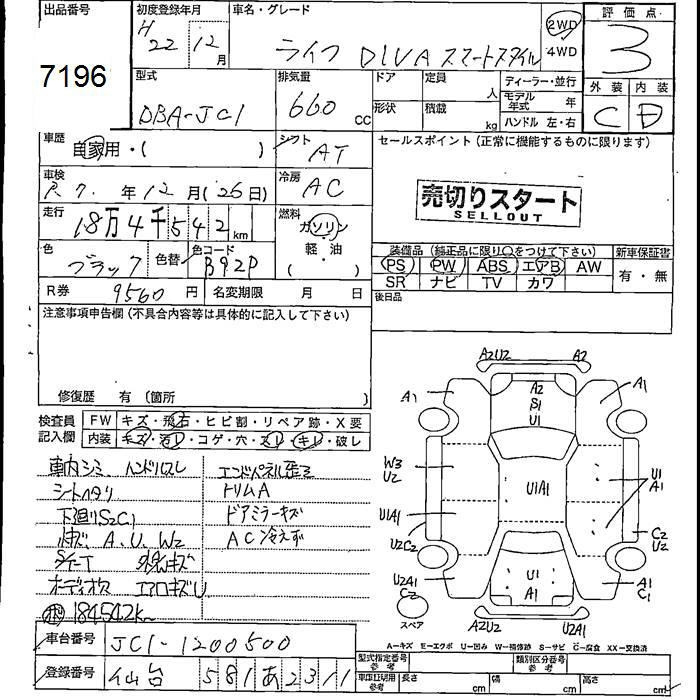 出品番号 初度登録年月 車名・グレード 評価点
7196 H 22年12月 ライフ DIVA スマートスタイル 2WD 4WD 3
外装 内装
C D
型式 排気量 ドア 定員 人 ディーラー・並行
DBA-JC1 660 cc 形状 積載 kg モデル年式 年
ハンドル 左・右
車歴 自家用・( ) シフト AT セールスポイント(正常に機能するものに限ります)
車検 R 7. 年12月(26日) 冷房 AC
売切りスタート
SELLOUT
走行 18万4千542km 燃料 ガソリン
軽・油
( )
色 ブラック 色替 色コード B92P
装備品(純正品に限り〇をつけて下さい) 新車保証書
PS PW ABS エアB AW 有・無
SR ナビ TV カワ
R券 9560円 名変期限 月 日 後日品
注意事項申告欄(不具合内容等は具体的に記入して下さい)
修復歴 有 (箇所 )
検査員記入欄 FW キズ・飛石・ヒビ割・リペア跡・X要
内装 キズ・汚レ・コゲ・穴・スレ・キレ・破レ
車内シミ、ハンドルスレ エンドパネル歪ミ
シートヘタリ トリムA
下廻りS2C1 ドアミラーキズ
A、U、W2 AC冷えず
オーディオス エアロキズU
184542k
A2U2 A2
A1 A2 S1 U1 A1
W3 U2 U1A1 U1 A1
U1A1
U2C2 C2 U2
U2A1 U1 A1 A1 C1
スペア A2U2 U2A1
A-キズ E-エクボ U-凹み W-補修跡 S-サビ C-腐食 XX-交換済
車台番号 JC1-1200500
型式指定番号 参考 類別区分番号 参考
登録番号 仙台 581 あ 2311
車庫証明用 参考 長さ cm 幅 cm 高さ cm